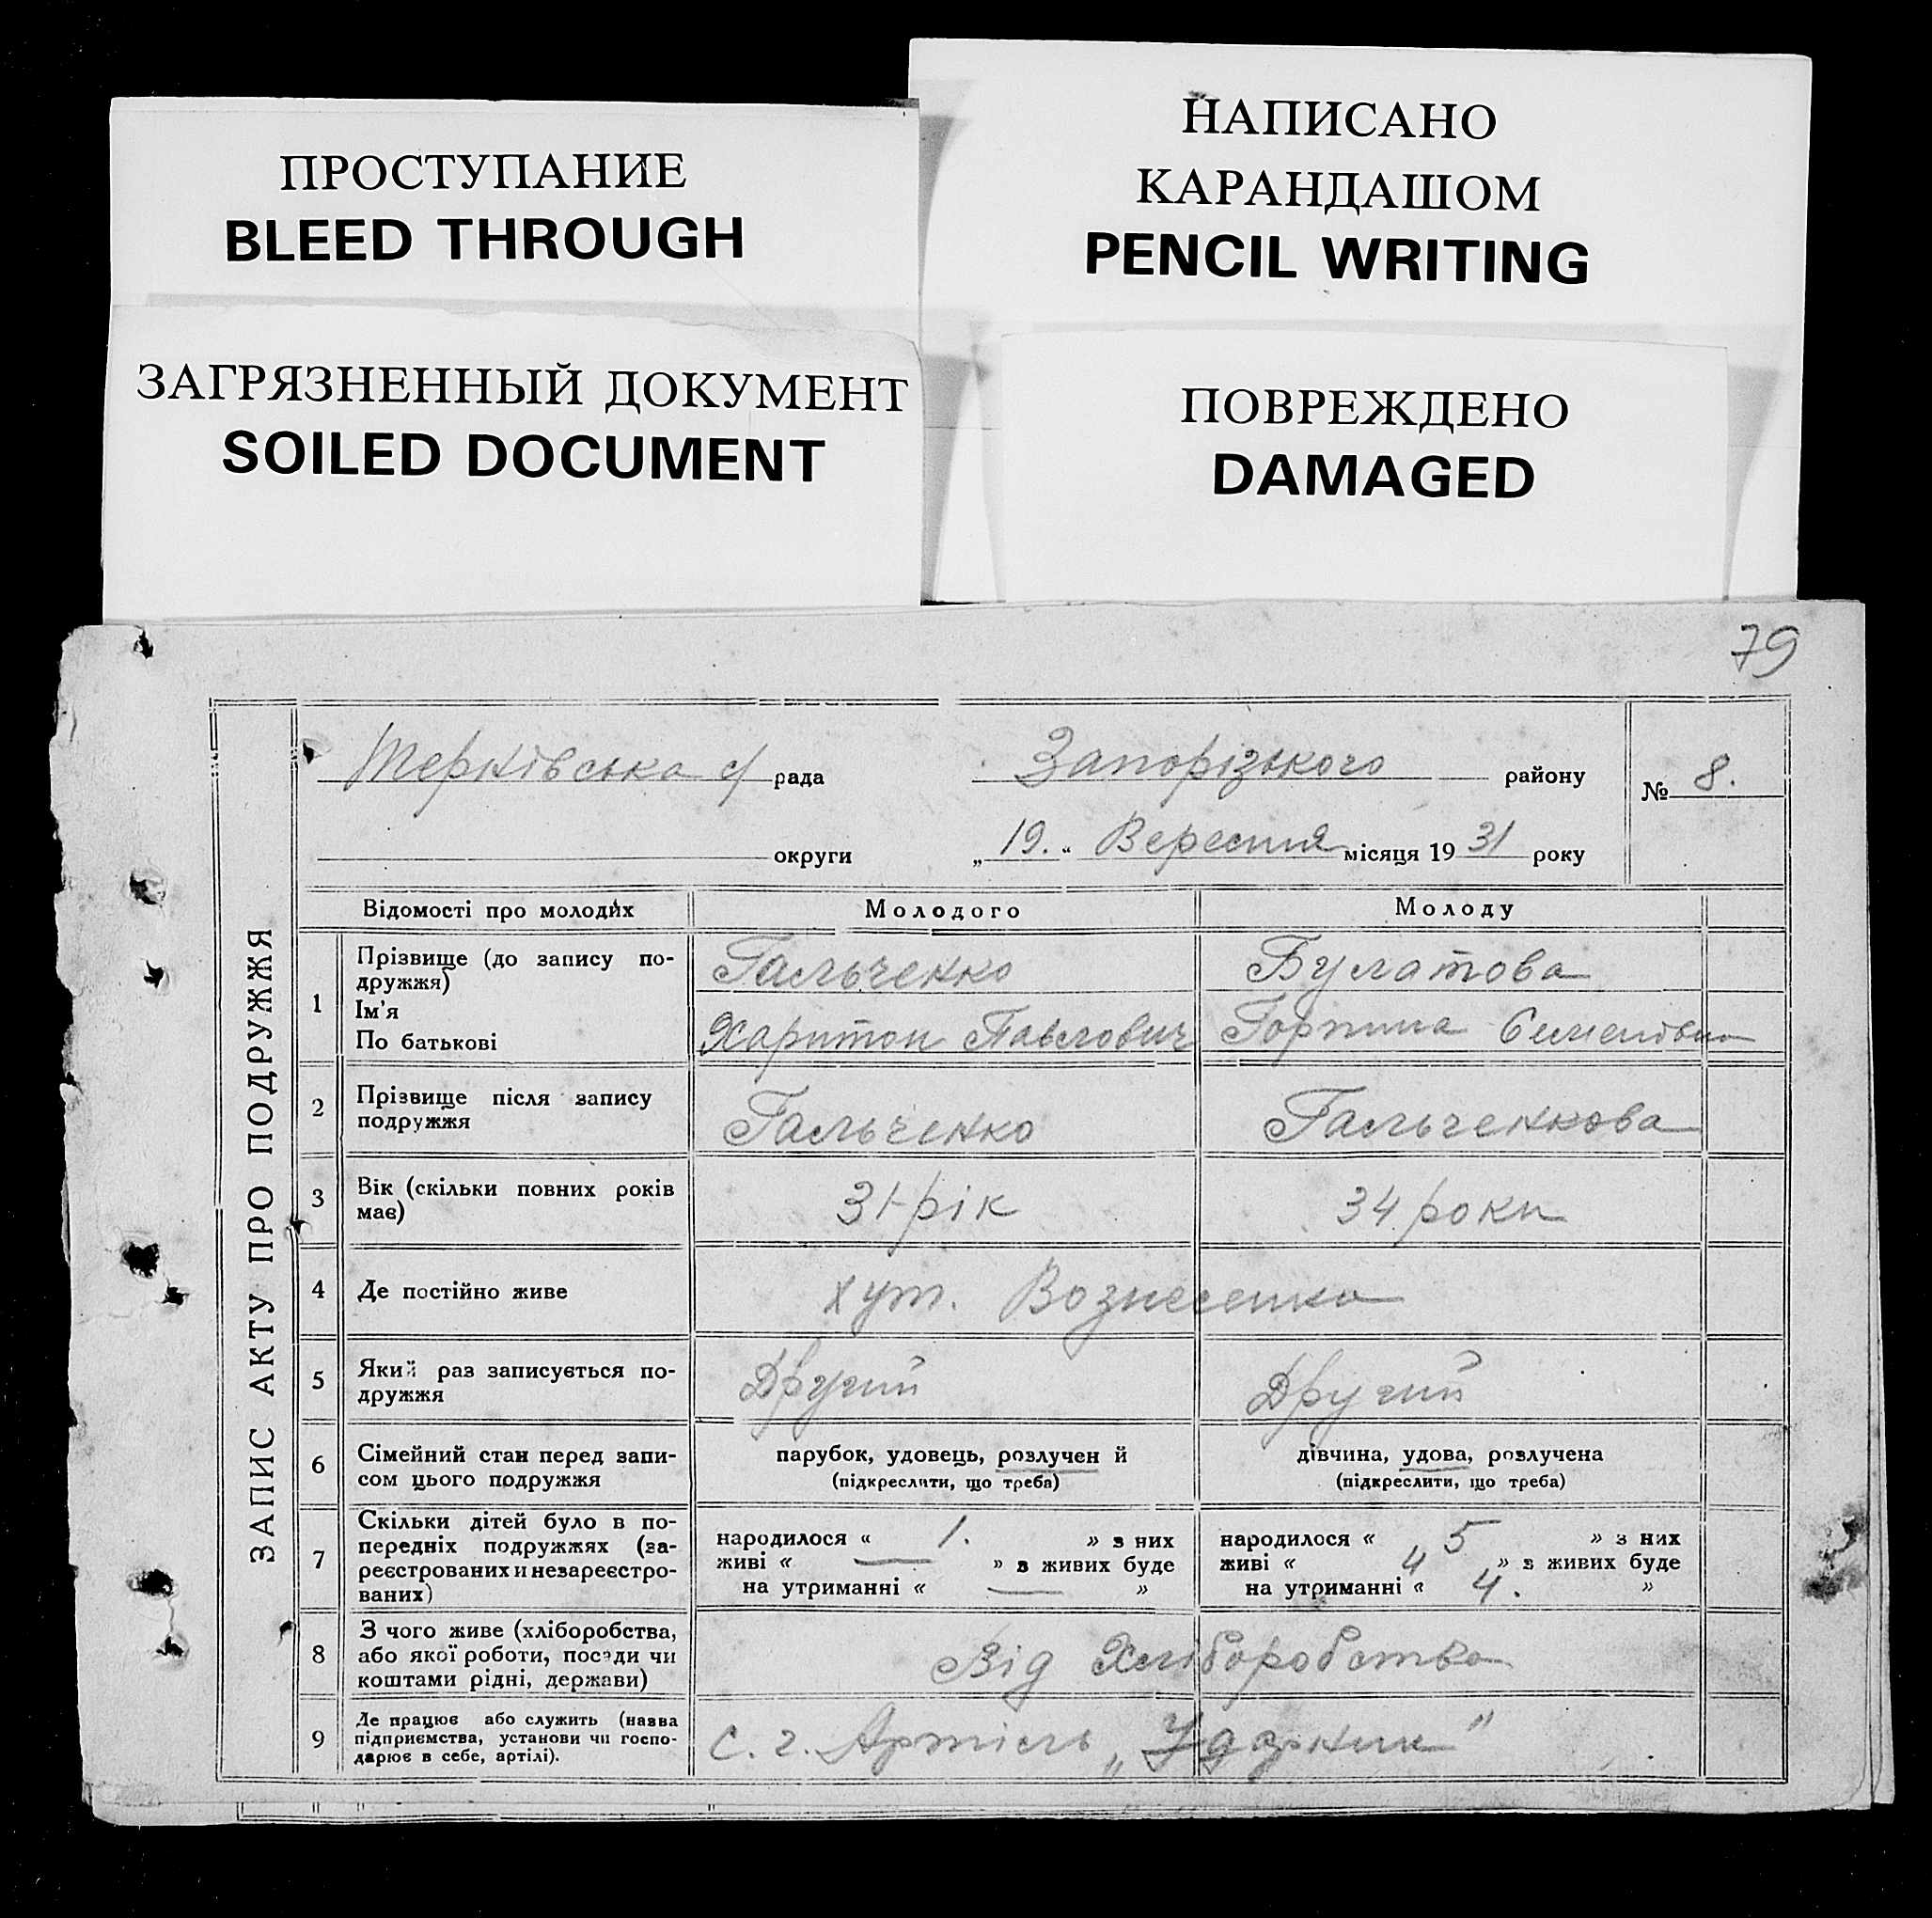 ПРОСТУПАНИЕ
BLEED THROUGH
НАПИСАНО
КАРАНДАШОМ
PENCIL WRITING
ЗАГРЯЗНЕННЫЙ ДОКУМЕНТ
SOILED DOCUMENT
ПОВРЕЖДЕНО
DAMAGED
79
ЗАПИС АКТУ ПРО ПОДРУЖЖЯ
с/ рада Запорізького району № 8.
округи „19.“ Вересня місяця 1931 року
Відомості про молодих Молодого Молоду
1 Прізвище (до запису по-
дружжя) Гальченко Булатова
Ім'я
По батькові Харитон Павлович Горпина Семенівна
2 Прізвище після запису
подружжя Гальченко Гальченкова
3 Вік (скільки повних років
має) 31 рік 34 роки
4 Де постійно живе хут. Вознесенка
5 Який раз записується по-
дружжя Другий Другий
6 Сімейний стан перед запи-
сом цього подружжя
парубок, удовець, розлучений
(підкреслити, що треба)
дівчина, удова, розлучена
(підкреслити, що треба)
7 Скільки дітей було в по-
передніх подружжях (за-
реєстрованих и незареєстро-
ваних)
народилося « 1. » з них
живі « — » з живих буде
на утриманні « — »
народилося « 5 » з них
живі « 4 » з живих буде
на утриманні « 4. »
8 З чого живе (хліборобства,
або якої роботи, посади чи
коштами рідні, держави) Від Хліборобства
9 Де працює або служить (назва
підприємства, установи чи госпо-
дарює в себе, артілі). С. г. Артіль „Ударник"